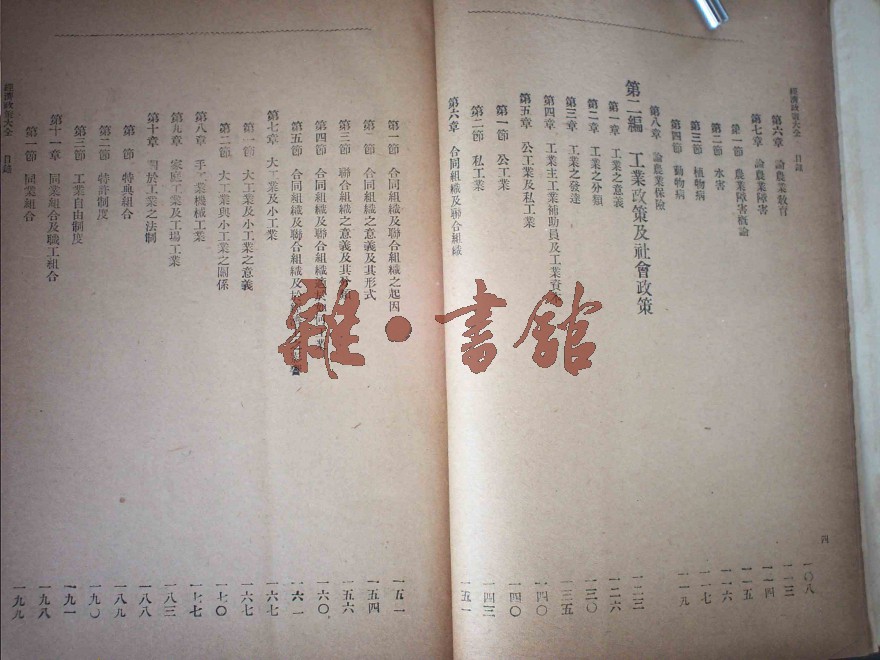 經濟政策大全 目錄
四
第六章 論農業教育 一〇八
第七章 論農業障害 一一三
第一節 農業障害概論 一一四
第二節 水害 一一五
第三節 植物病 一一六
第四節 動物病 一一七
第八章 論農業保險 一一九
第二編 工業政策及社會政策
第一章 工業之意義 一二三
第二章 工業之分類 一二六
第三章 工業之發達 一三〇
第四章 工業主工業補助員及工業資 一三五
第五章 公工業及私工業 一四〇
第一節 公工業 一四〇
第二節 私工業 一四三
第六章 合同組織及聯合組織 一五一
第一節 合同組織及聯合組織之起因 一五一
第二節 合同組織之意義及其形式 一五四
第三節 聯合組織之意義及其分類 一五六
第四節 合同組織及聯合組織 一六〇
第五節 合同組織及聯合組織 一六一
第七章 大工業及小工業 一六七
第一節 大工業及小工業之意義 一六七
第二節 大工業與小工業之關係 一七〇
第八章 手工業機械工業 一七七
第九章 家庭工業及工場工業 一八三
第十章 關於工業之法制 一八八
第一節 特典組合 一八九
第二節 特許制度 一九〇
第三節 工業自由制度 一九一
第十一章 同業組合及職工組合 一九八
第一節 同業組合 一九九
經濟政策大全 目錄
雜·書館